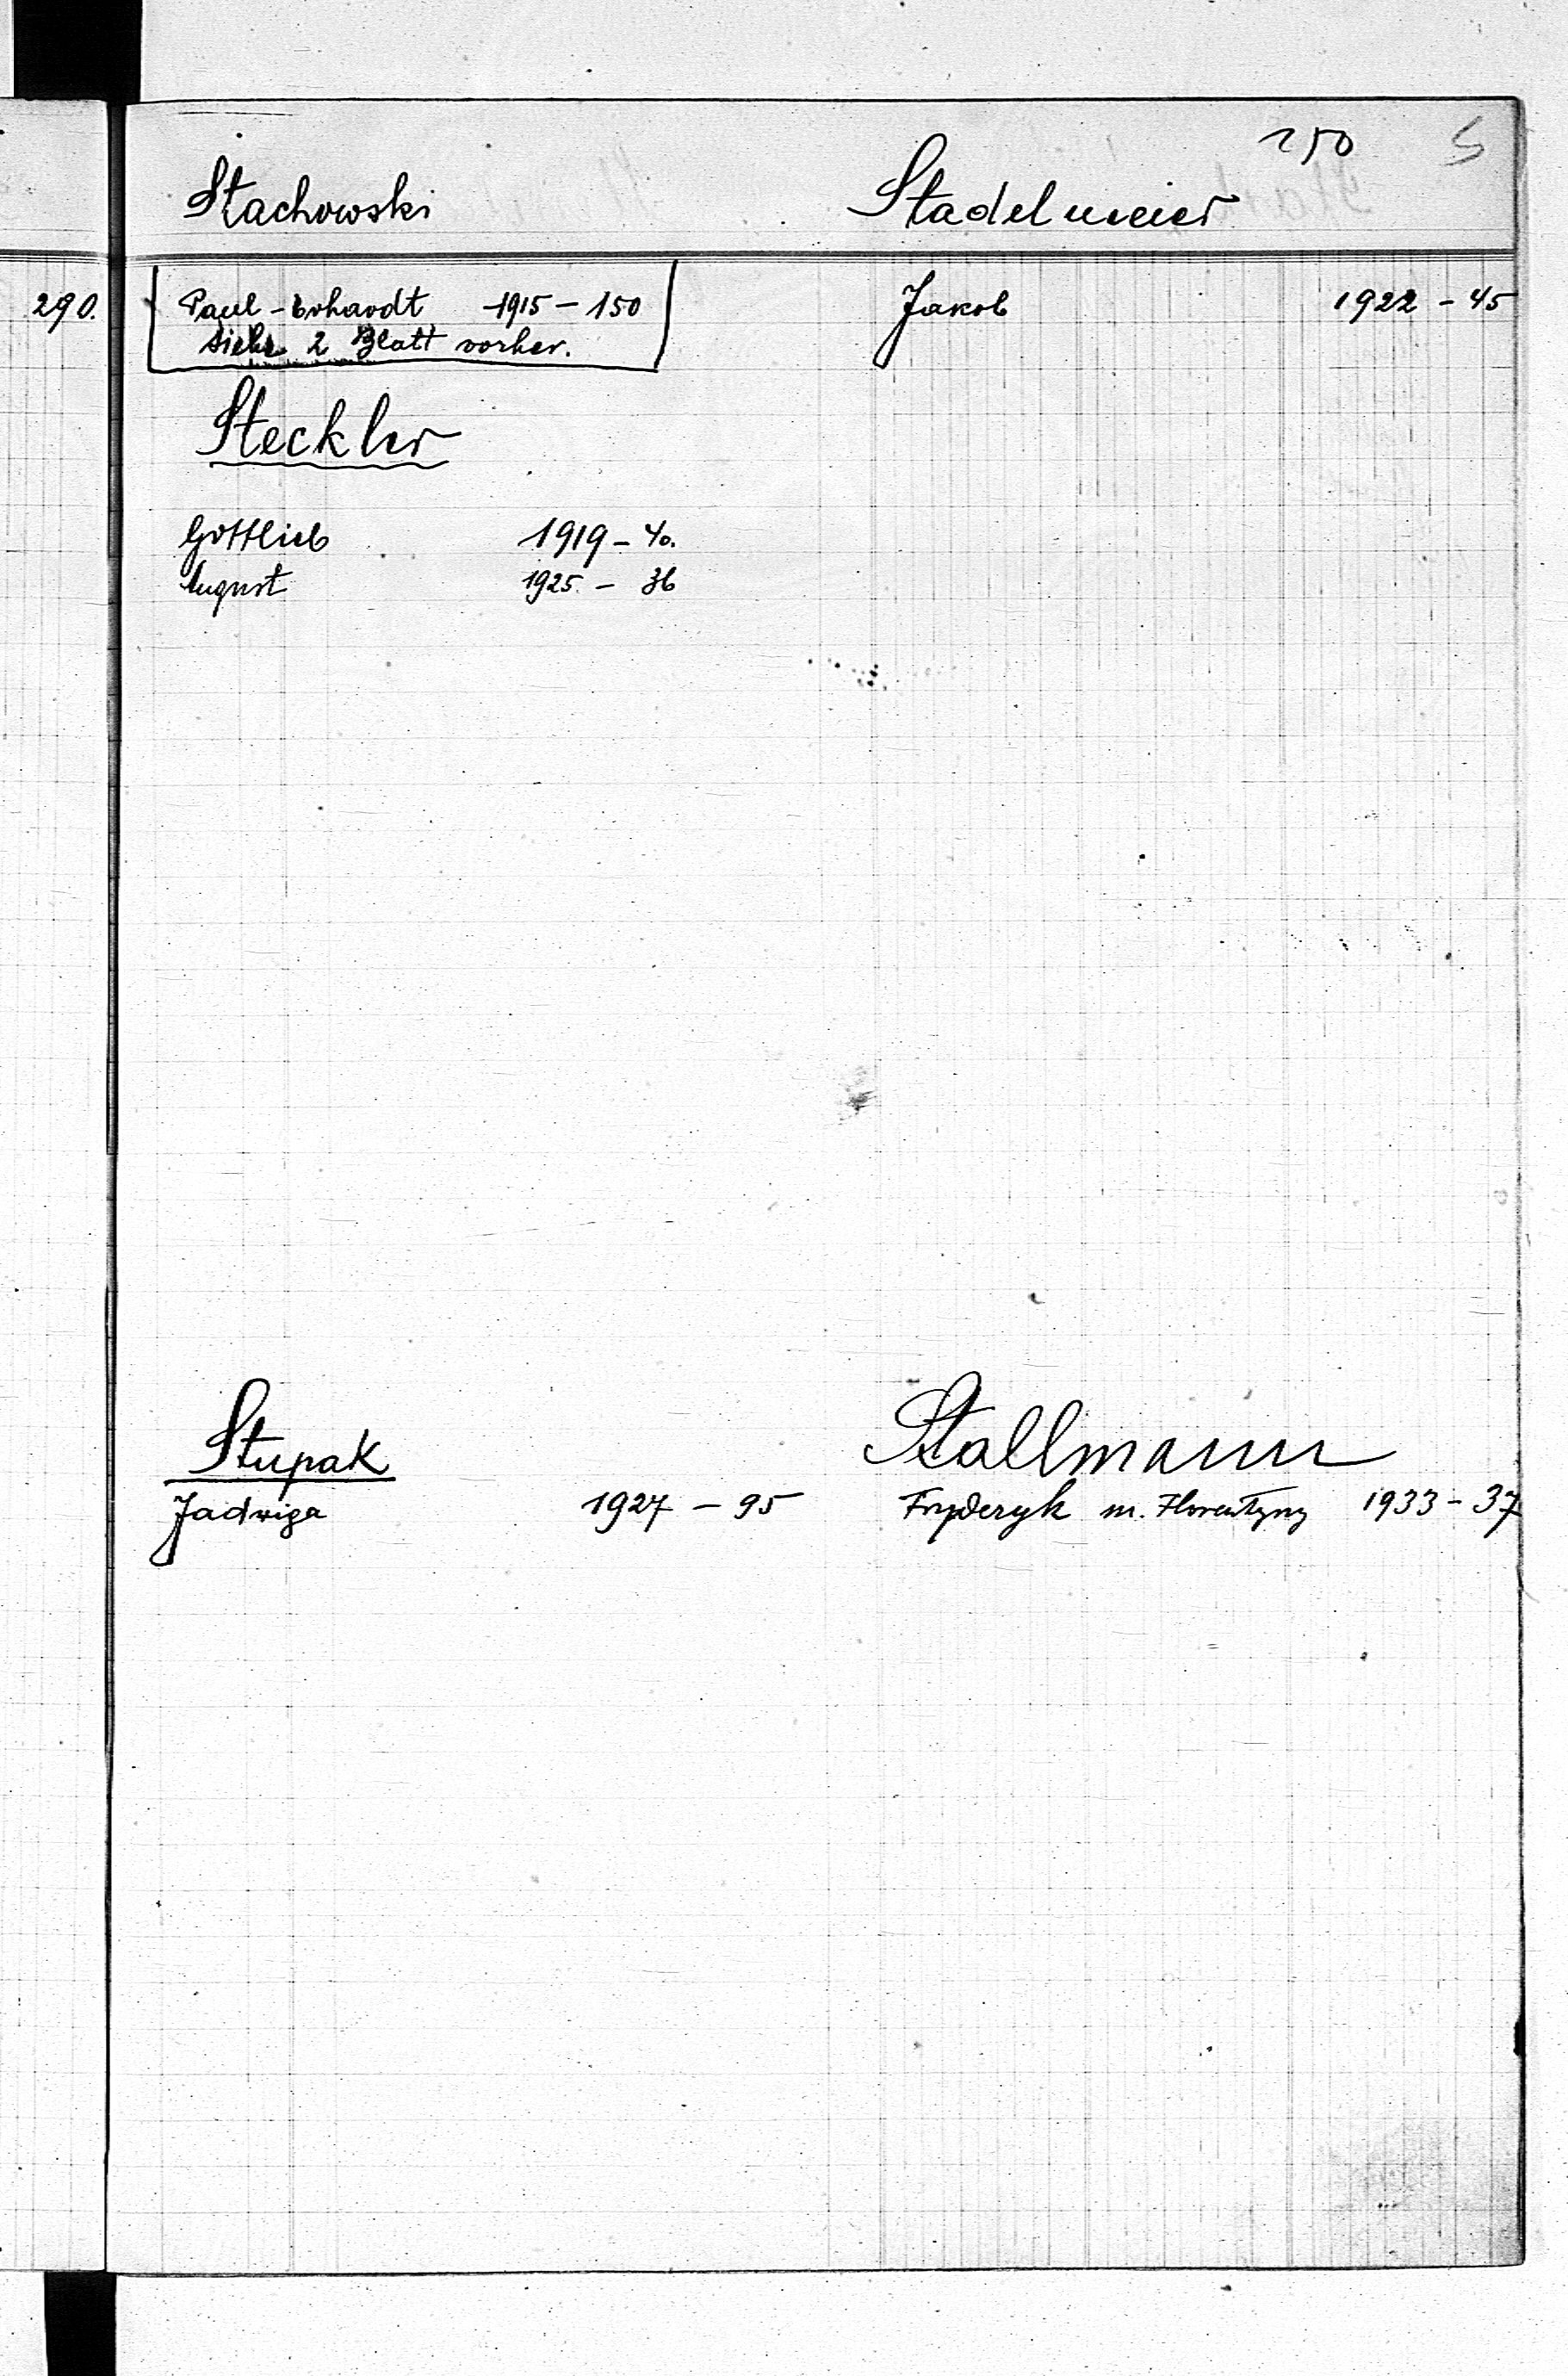 250 S
Stachowski
Paul-Erhardt 1915 - 150
siehe 2 Blatt vorher.
Steckler
Gottlieb 1919 - 40.
August 1925. - 36
Stupak
Jadwiga 1927 - 95
Stadelmeier
Jakob 1922 - 45
Stallmann
Fryderyk m. Florentyny 1933 - 37
290.